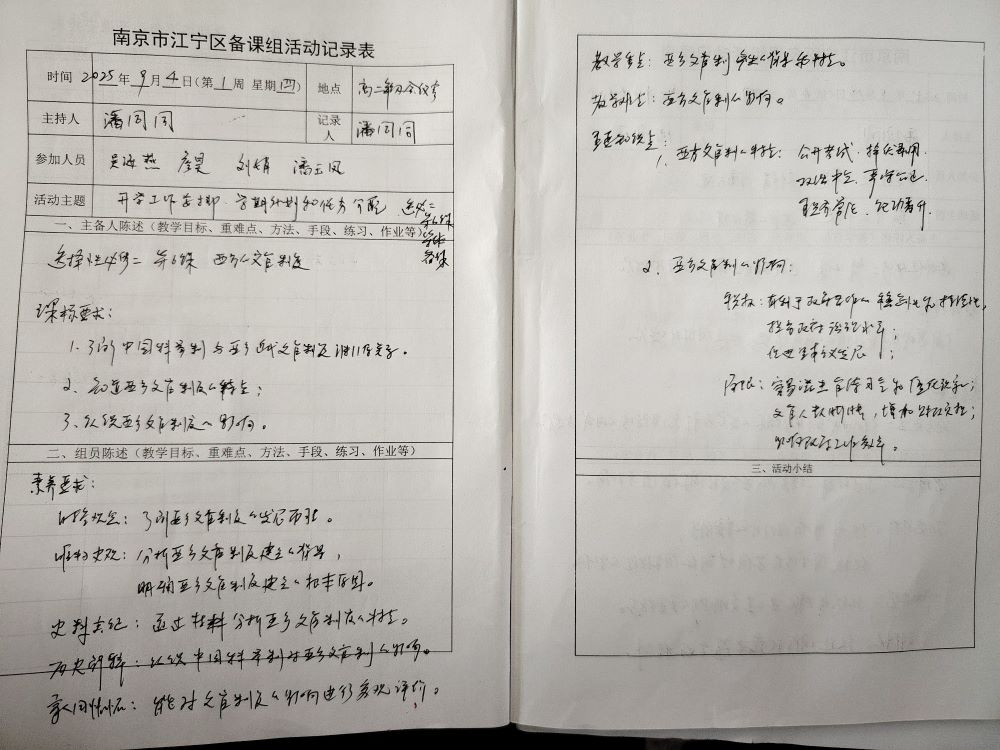 南京市江宁区备课组活动记录表
时间 2025年 9月 4日(第 1 周 星期四) 地点 高二年级会议室
主持人 潘同同 记录人 潘同同
参加人员 吴海燕 彦昊 刘娟 潘云凤
活动主题 开学工作安排、学期计划和任务分配 选必二
第6课
集体
备课
一、主备人陈述(教学目标、重难点、方法、手段、练习、作业等)
选择性必修二 第6课 西方文官制度
课标要求:
1、了解中国科举制与西方近代文官制度之间的关系。
2、知道西方文官制度的特点;
3、认识西方文官制度的影响。
二、组员陈述(教学目标、重难点、方法、手段、练习、作业等)
素养要求:
时空观念:了解西方文官制度的发展历程。
唯物史观:分析西方文官制度建立的背景,
明确西方文官制度建立的根本原因。
史料实证:通过材料分析西方文官制度的特点。
历史解释:认识中国科举制对西方文官制的影响。
家国情怀:能对文官制度的影响进行客观评价。
教学重点:西方文官制产生的背景和特点。
教学难点:西方文官制的影响。
重要知识点:
1、西方文官制的特点:公开考试、择优录用
政治中立、事务公正
职务常任、论功晋升
2、西方文官制的影响:
积极:有利于政府工作的稳定性和连续性,
提高政府治理水平;
促进资本主义发展;
局限:容易滋生官僚习气和官僚作风;
文官人数膨胀,增加财政负担;
影响政府工作效率。
三、活动小结